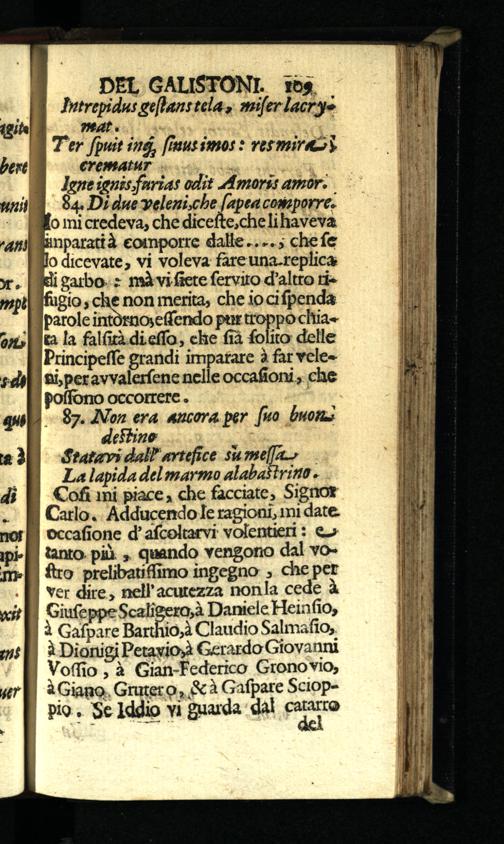 DEL GALISTONI. 109
Intrepidus gestans tela, miser lacry-
mat.
Ter spuit inq; sinus imos: res mira;
crematur
Igne ignis, furias odit Amoris amor.
84. Di due veleni, che sapea comporre.
Io mi credeva, che diceste, che li haveva
imparati à comporre dalle...., che se
lo dicevate, vi voleva fare una replica
di garbo: mà vi siete servito d'altro ri-
fugio, che non merita, che io ci spenda
parole intorno, essendo pur troppo chia-
ta la falsità di esso, che sia solito delle
Principesse grandi imparare à far vele-
ni, per avvalersene nelle occasioni, che
possono occorrere.
87. Non era ancora per suo buon
destino
Statavi dall'artefice sù messa
La lapida del marmo alabastrino.
Così mi piace, che facciate, Signor
Carlo. Adducendo le ragioni, mi date
occasione d'ascoltarvi volentieri: e
tanto più, quando vengono dal vo-
stro prelibatissimo ingegno, che per
ver dire, nell'acutezza non la cede à
Giuseppe Scaligero, à Daniele Heinsio,
à Gaspare Barthio, à Claudio Salmasio,
à Dionigi Petavio, à Gerardo Giovanni
Vossio, à Gian-Federico Gronovio,
à Giano Grutero, & à Gaspare Sciop-
pio. Se Iddio vi guarda dal catarro
del